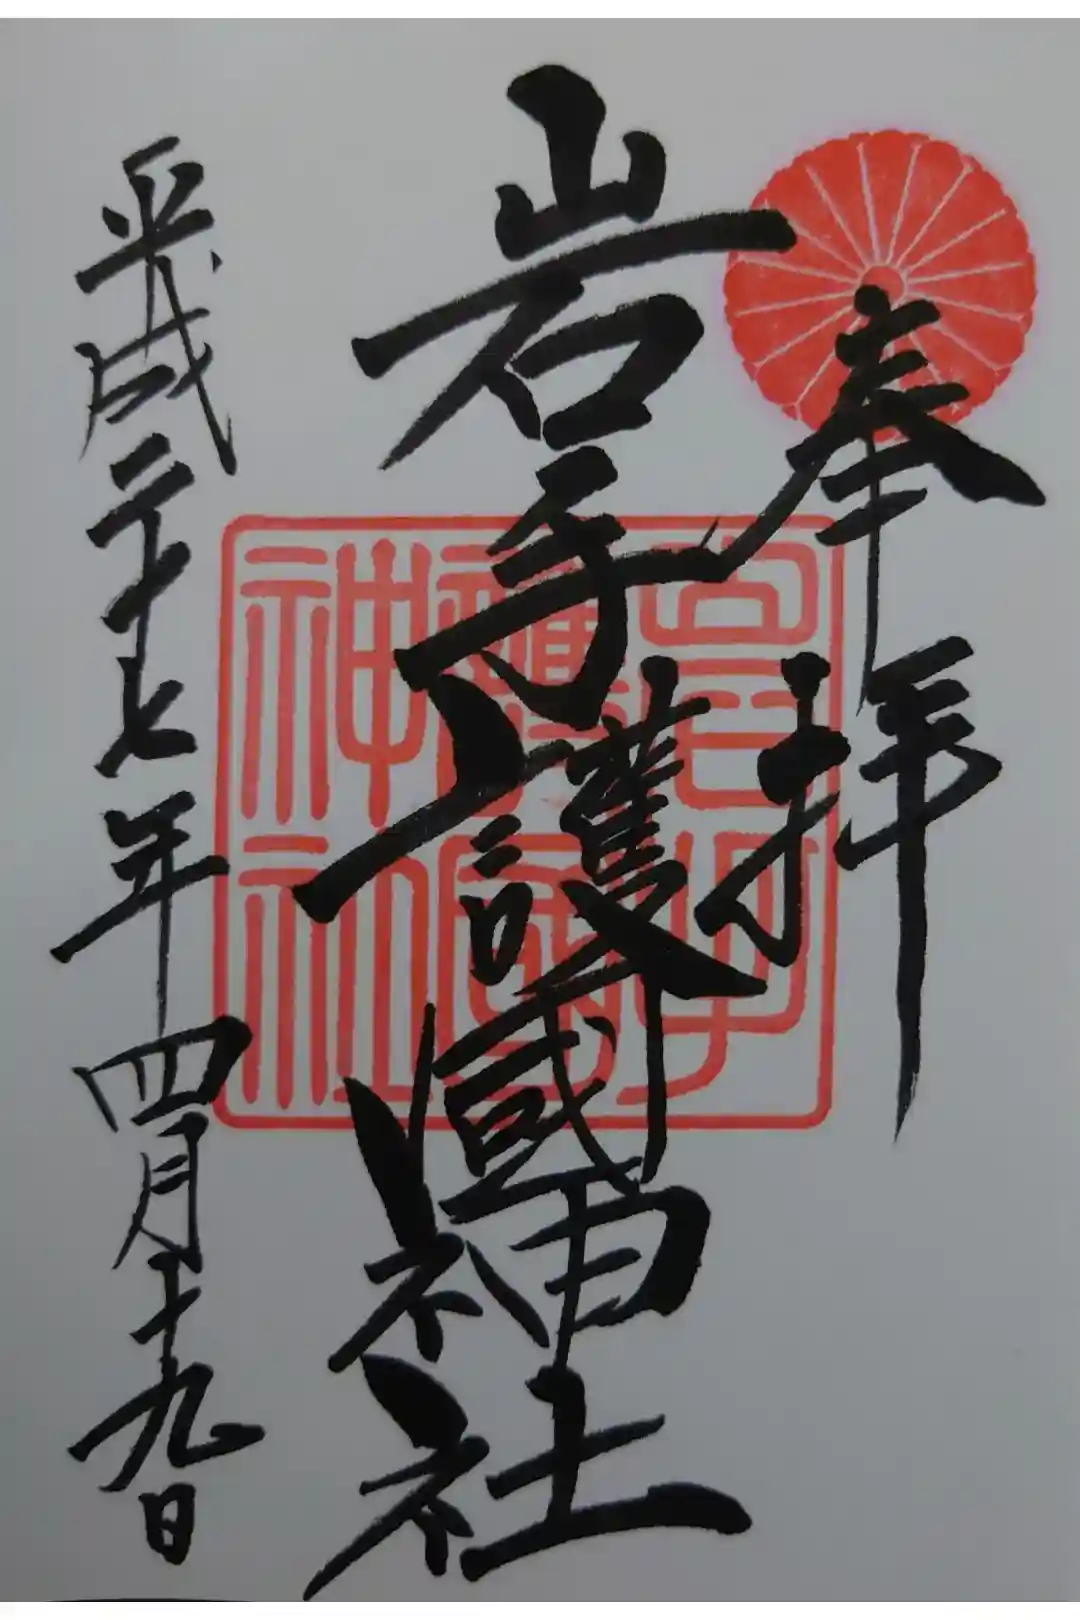 奉拝
岩手護國神社
岩手護国神社
平成二十七年四月十九日